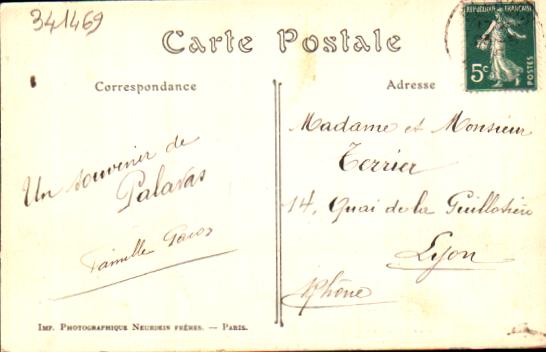 341469
Carte Postale
REPUBLIQUE FRANÇAISE
5c
POSTES
Correspondance
Adresse
Un souvenir de
Palavas
Famille
Madame et Monsieur
Terrier
14, Quai de la Guillotière
Lyon
Rhône
IMP. PHOTOGRAPHIQUE NEURDEIN FRÈRES. — PARIS.